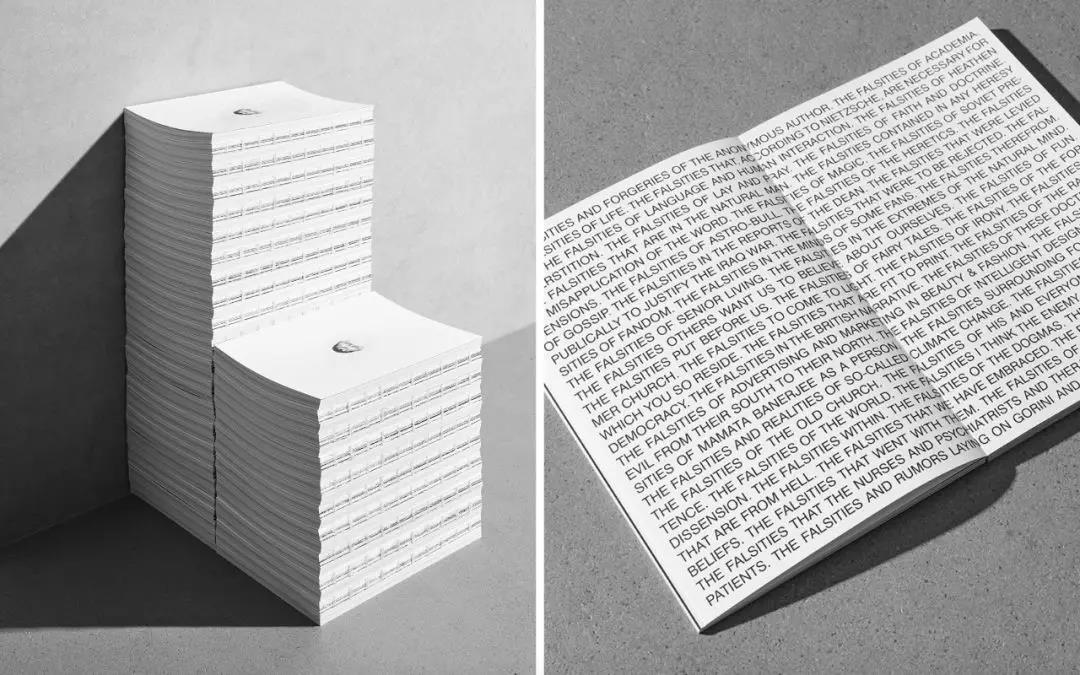 ITIES AND FORGERIES OF THE ANONYMOUS AUTHOR. THE FALSITIES OF ACADEMIA.
SITIES OF LIFE. THE FALSITIES THAT, ACCORDING TO NIETZSCHE, ARE NECESSARY FOR
HE FALSITIES OF LANGUAGE AND HUMAN INTERACTION. THE FALSITIES OF HEATHEN
RSTITION. THE FALSITIES OF LAY AND THE FALSITIES OF FAITH AND DOCTRINE
FALSITIES THAT ARE IN THE NATURAL THE FALSITIES CONTAINED IN ANY HERESY
MISAPPLICATION OF THE WORD. THE FALSITIES OF MAGIC. THE FALSITIES OF SOVIET PRE-
ENSIONS. THE FALSITIES OF ASTRO-BULL. THE DEAN. THE HERETICS. THE FALSITIES
OF GOSSIP. THE FALSITIES IN THE REPORTS FALSITIES THAT WERE LEVIED
PUBLICALLY TO JUSTIFY THE IRAQ WAR. THE THAT WERE TO BE REJECTED. THE FAL-
SITIES OF FANDOM. THE FALSITIES IN THE MINDS OF SOME FANS. THE FALSITIES THEREFROM.
THE FALSITIES OF SENIOR LIVING. THE FALSITIES IN THE EXTREMES OF THE NATURAL MIND.
THE FALSITIES OTHERS WANT US TO BELIEVE ABOUT OURSELVES. THE FALSITIES OF FUN.
THE FALSITIES PUT BEFORE US. THE FALSITIES OF FAIRY TALES. THE FALSITIES OF THE FOR-
MER CHURCH. THE FALSITIES TO COME TO LIGHT. THE FALSITIES OF IRONY. THE FALSITIES FOR
WHICH YOU SO RESIDE. THE FALSITIES THAT ARE FIT TO PRINT. THE FALSITIES OF THE RA
DEMOCRACY. THE FALSITIES IN THE BRITISH NARRATIVE. THE FALSITIES OF THESE DOCT
THE FALSITIES OF ADVERTISING AND MARKETING IN BEAUTY & FASHION. THE FALS
EVIL FROM THEIR SOUTH TO THEIR NORTH. THE FALSITIES OF INTELLIGENT DESIGN
SITIES OF MAMATA BANERJEE AS A PERSON. THE FALSITIES SURROUNDING
THE FALSITIES AND REALITIES OF SO-CALLED CLIMATE CHANGE. THE FALSITIE
THE FALSITIES OF THE OLD CHURCH. THE FALSITIES OF HIS AND EVERYO
TENCE. THE FALSITIES OF THE WORLD. THE FALSITIES I THINK THE ENEMY
DISSENSION. THE FALSITIES WITHIN. THE FALSITIES OF THE DOGMAS.
THAT ARE FROM HELL. THE FALSITIES THAT WE HAVE EMBRACED. THE
BELIEFS. THE FALSITIES THAT WENT WITH THEM. THE FALSITIES OF
THE FALSITIES THAT THE NURSES AND PSYCHIATRISTS AND THER
PATIENTS. THE FALSITIES AND RUMORS LAYING ON GORINI AND